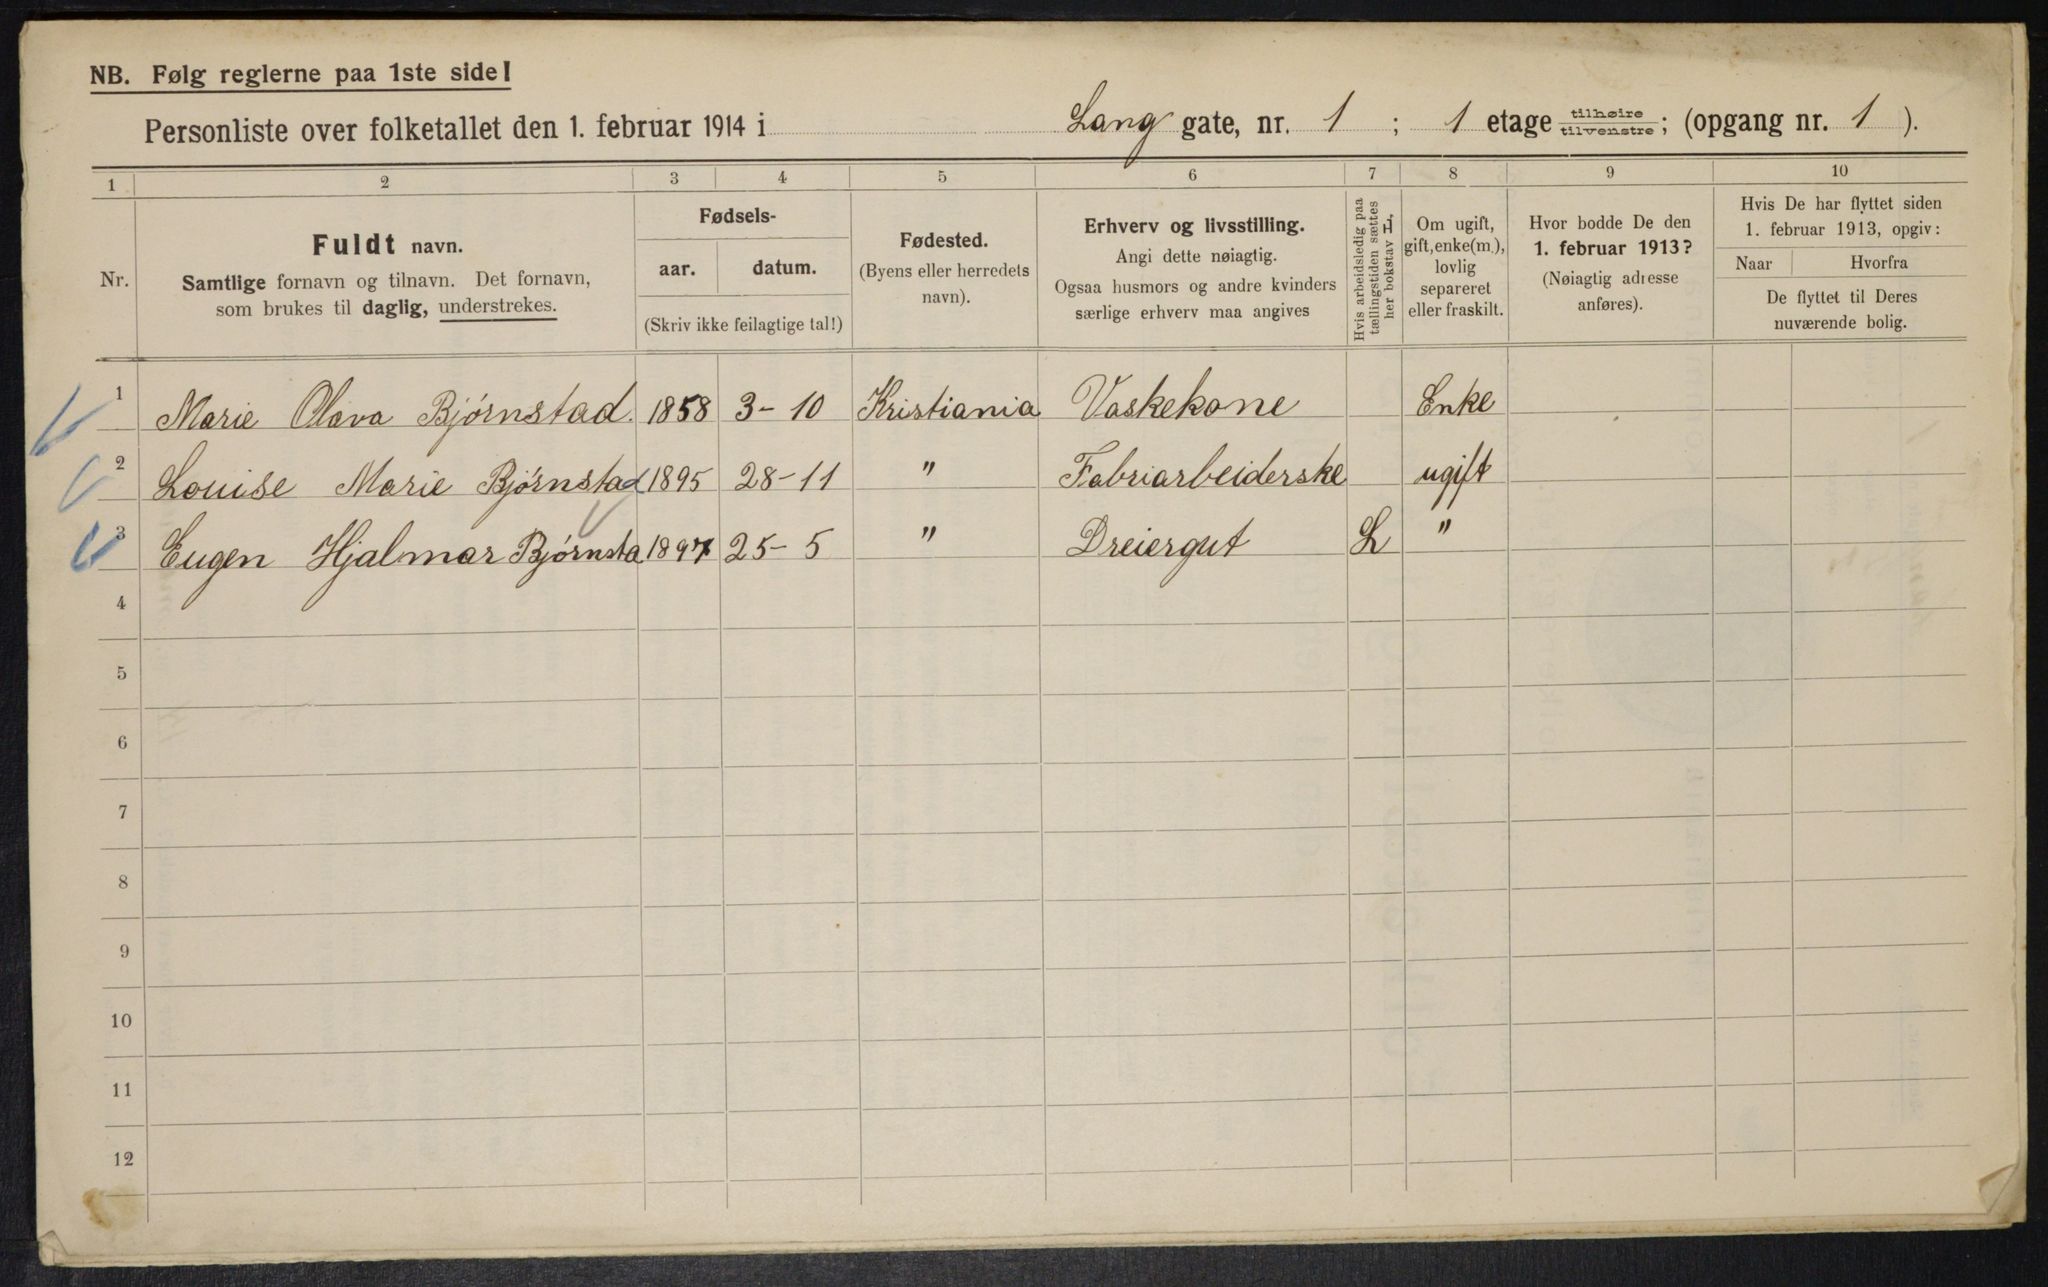 NB. Følg reglerne paa 1ste side!
Personliste over folketallet den 1. februar 1914 i Lang gate, nr. 1 ; 1 etage tilhøire tilvenstre; (opgang nr. 1 ).
1 2 3 4 5 6 7 8 9 10
Nr.
Fuldt navn.
Samtlige fornavn og tilnavn. Det fornavn,
som brukes til daglig, understrekes.
Fødsels-
aar. datum.
(Skriv ikke feilagtige tal!)
Fødested.
(Byens eller herredets
navn).
Erhverv og livsstilling.
Angi dette nøiagtig.
Ogsaa husmors og andre kvinders
særlige erhverv maa angives
Hvis arbeidsledig paa
tællingstiden sættes
her bokstav L.
Om ugift,
gift, enke(m.),
lovlig
separeret
eller fraskilt.
Hvor bodde De den
1. februar 1913?
(Nøiagtig adresse
anføres).
Hvis De har flyttet siden
1. februar 1913, opgiv:
Naar Hvorfra
De flyttet til Deres
nuværende bolig.
1 Marie Olava Bjørnstad. 1858 3-10 Kristiania Vaskekone Enke
2 Louise Marie Bjørnstad 1895 28-11 " Fabriarbeiderske ugift
3 Eugen Hjalmar Bjørnsta 1897 25-5 " Dreiergut L "
4
5
6
7
8
9
10
11
12